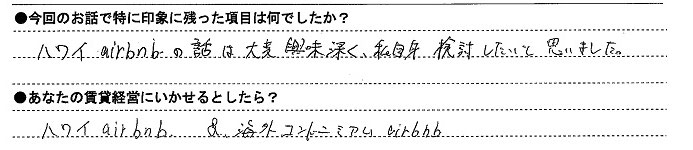 ●今回のお話で特に印象に残った項目は何でしたか？
ハワイ airbnbの話は大変興味深く、私自身 検討したいと思いました。
●あなたの賃貸経営にいかせるとしたら？
ハワイ airbnb & 海外コンドミニアム airbnb